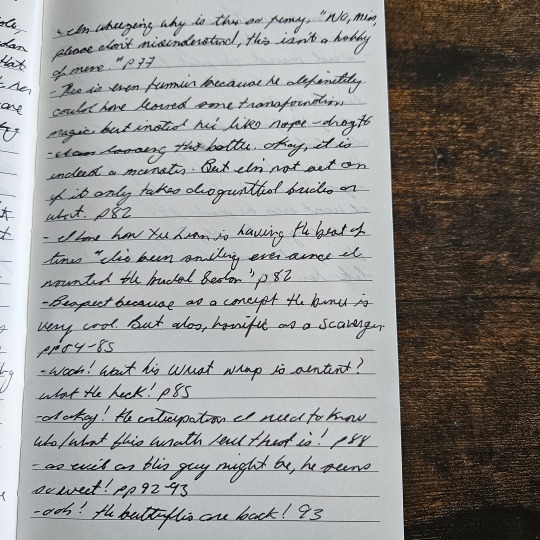 - I'm wheezing why is this so funny, "No, miss,
please don't misunderstand, this isn't a hobby
of mine." p77
- This is even funnier because he definitely
could have learned some transformation
magic but instead he's like nope - drag it
- I am loving this battle. Okay, it is
indeed a monster. But I'm not set on
if it only takes disgruntled brides or
what. p82
- I love how Xie Lian is having the best of
times "I've been smiling ever since I
mounted the bridal sedan" p82
- Bespect because as a concept the is
very cool. But alas, horrific as a scavenger.
pp84-85
- Woah! Wait his wrist wrap is sentient?
what the heck! p85
- okay! the anticipation I need to know
who/what this wrath level threat is! p88
- as evil as this guy might be, he seems
so sweet! pp92-93
- ooh! the butterflies are back! 93